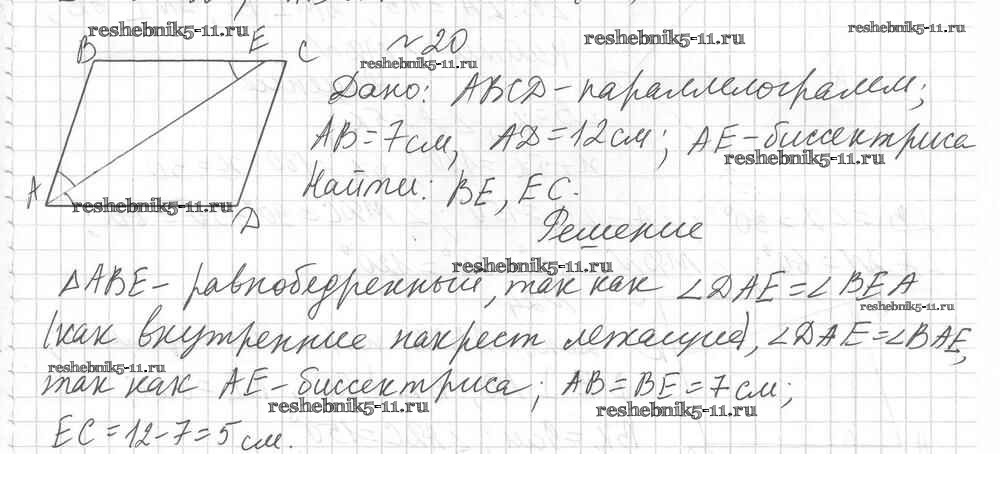 reshebnik5-11.ru
reshebnik5-11.ru
reshebnik5-11.ru
B E C
№20
reshebnik5-11.ru
Дано: ABCD - параллелограмм;
AB = 7 см, AD = 12 см; AE - биссектриса
reshebnik5-11.ru
Найти: BE, EC.
A D
reshebnik5-11.ru
Решение
reshebnik5-11.ru
△ABE - равнобедренный, так как ∠DAE = ∠BEA
reshebnik5-11.ru
(как внутренние накрест лежащие), ∠DAE = ∠BAE,
reshebnik5-11.ru
так как AE - биссектриса; AB = BE = 7 см;
reshebnik5-11.ru
reshebnik5-11.ru
EC = 12 - 7 = 5 см.